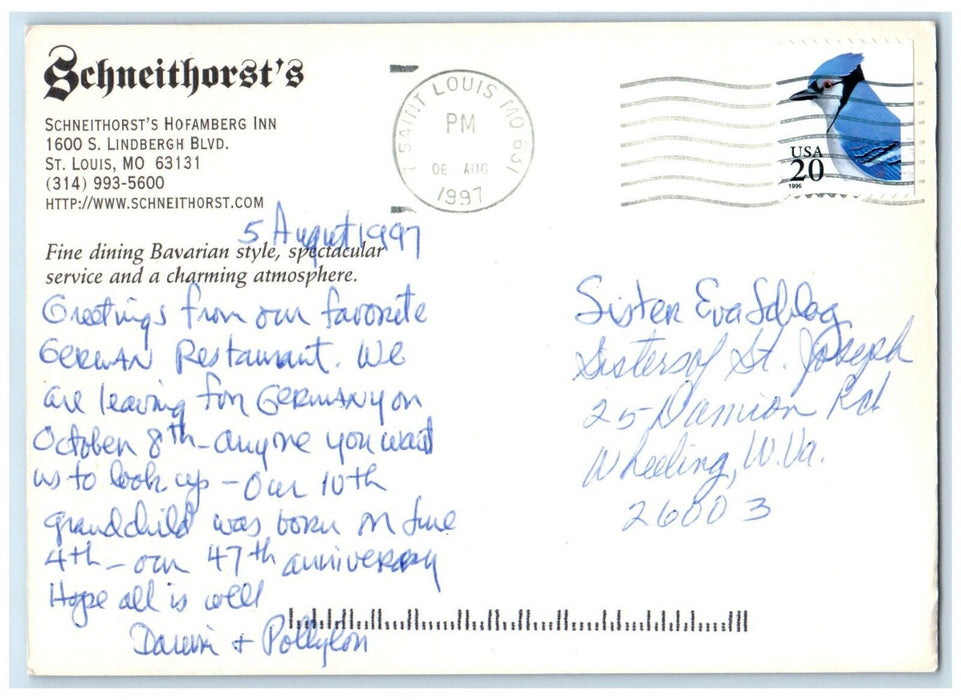 Schneithorst's
SCHNEITHORST'S HOFAMBERG INN
1600 S. LINDBERGH BLVD.
ST. LOUIS, MO 63131
(314) 993-5600
HTTP://WWW.SCHNEITHORST.COM
SAINT LOUIS MO 631
PM
06 AUG
1997
USA
20
1996
5 August 1997
Fine dining Bavarian style, spectacular
service and a charming atmosphere.
Greetings from our favorite
GERMAN Restaurant. We
are leaving for GERMANY on
October 8th - anyone you want
us to look up - Our 10th
grandchild was born on June
4th - our 47th anniversary
Hope all is well
+
Sister Eva
Sisters of St. Joseph
25 Damian Rd
Wheeling, W. Va.
26003